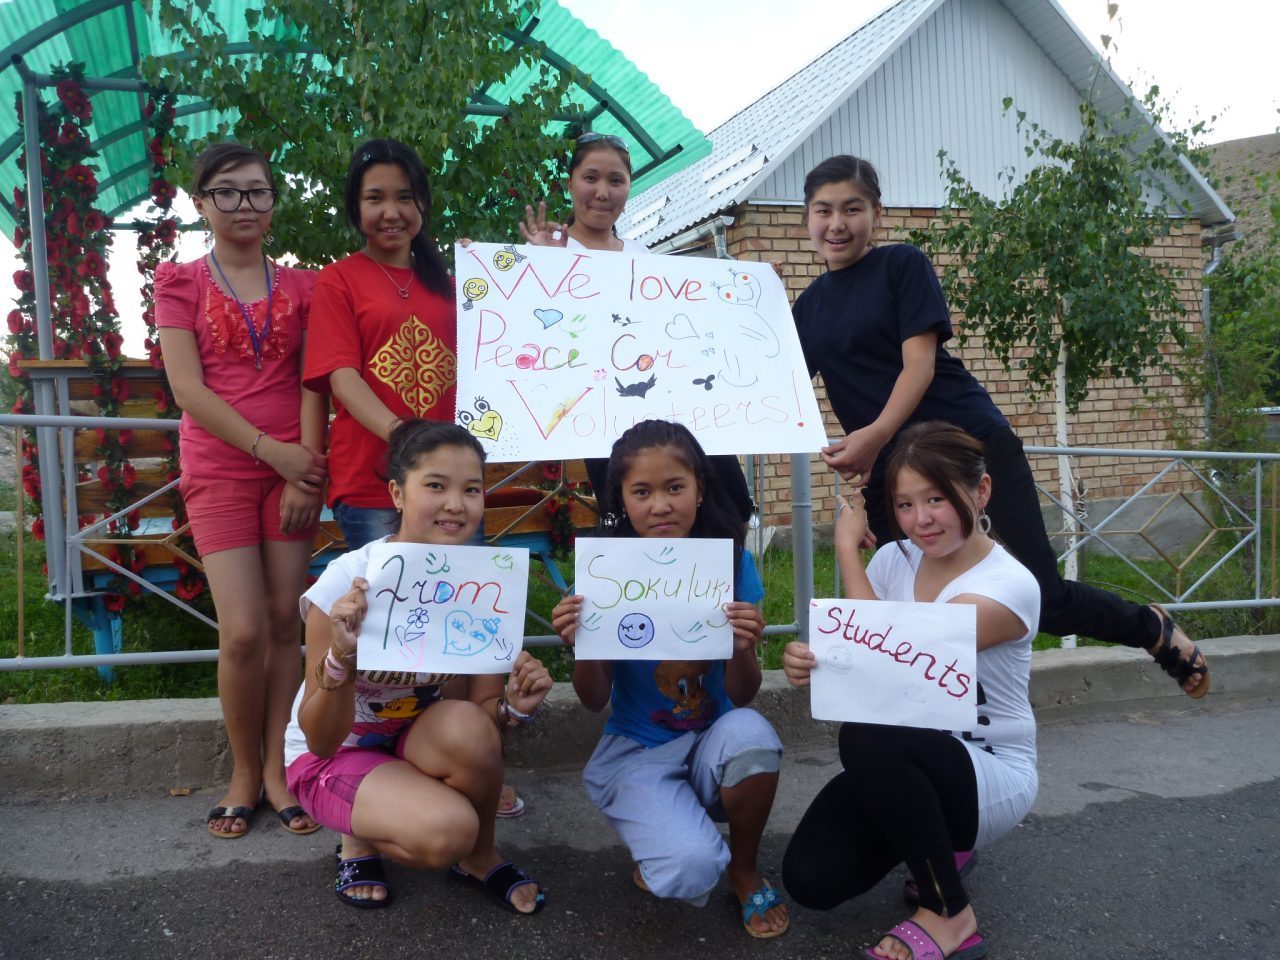 We love
Peace Cor
Volunteers!
From
Sokuluk's
Students